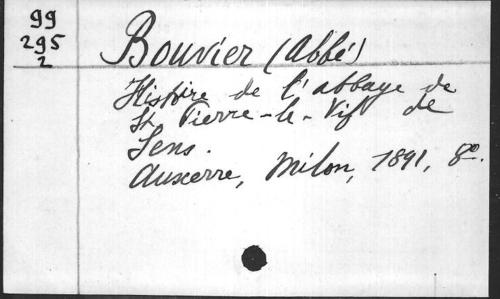 99
295
2
Bouvier (abbé)
Histoire de l'abbaye de
St Pierre-le-Vif de
Sens.
Auxerre, Milon, 1891, 8º.